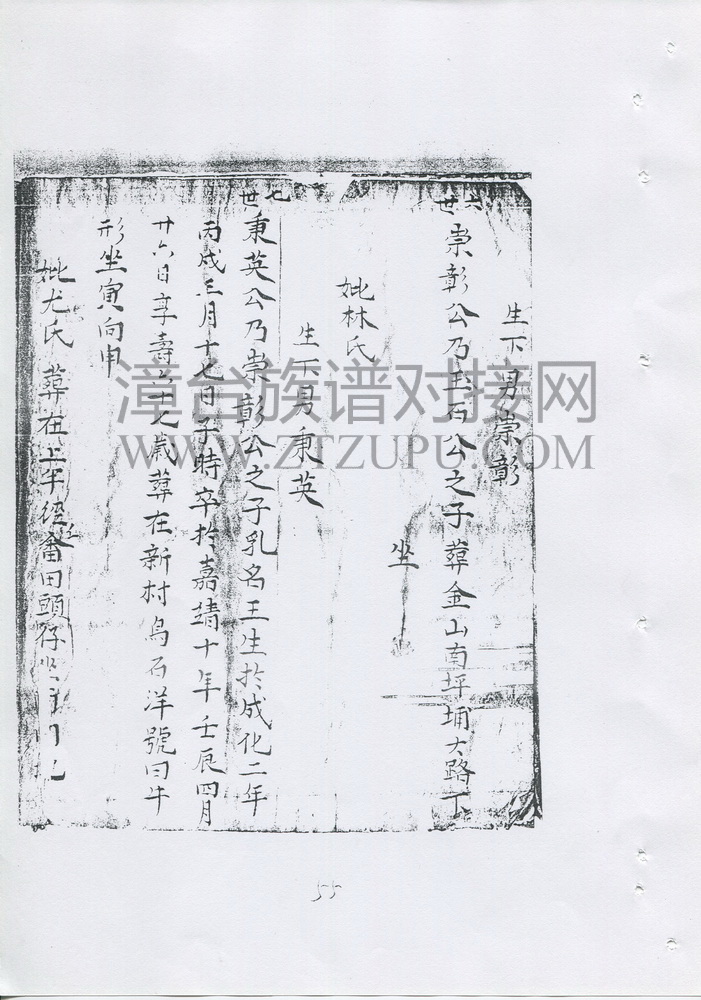 生下男崇彰
六世
崇彰公乃玉石公之子葬金山南坪埔大路下
坐
妣林氏
生下男秉英
七世
秉英公乃崇彰公之子乳名王生於成化二年
丙戌三月十七日子時卒於嘉靖十年壬辰四月
廿六日享壽六十七歲葬在新村烏石洋號曰牛
形坐寅向申
妣尤氏葬在上平徑畬田頭仔坐
漳台族谱对接网
WWW.ZTZUPU.COM
55